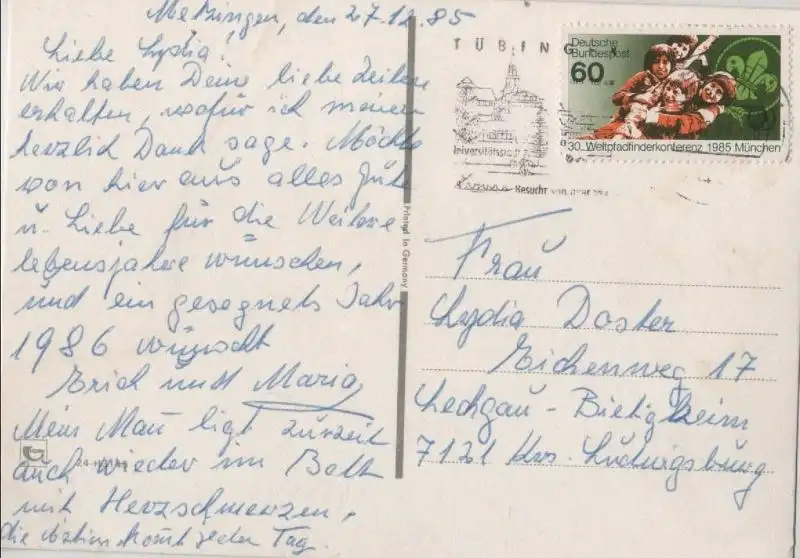 Metzingen, den 27.12.85
Liebe Lydia!
Wir haben Deine liebe Zeilen
erhalten, wofür ich meinen
herzlich Dank sage. Möchte
von hier aus alles Gute
u. Liebe für die Weitere
lebensjahre wünschen,
und ein gesegnets Jahr
1986 wünscht
Erich und Maria
Mein Man ligt zurzeit
auch wieder im Bett
mit Herzschmerzen,
die komt jeden Tag.
Printed in Germany
TÜBINGEN
Universitätsstadt
Besucht
Deutsche
Bundespost
60
30. Weltpfadfinderkonferenz 1985 München
Frau
Lydia Doster
Eichenweg 17
Lechgau - Bietigheim
7121 Krs. Ludwigsburg